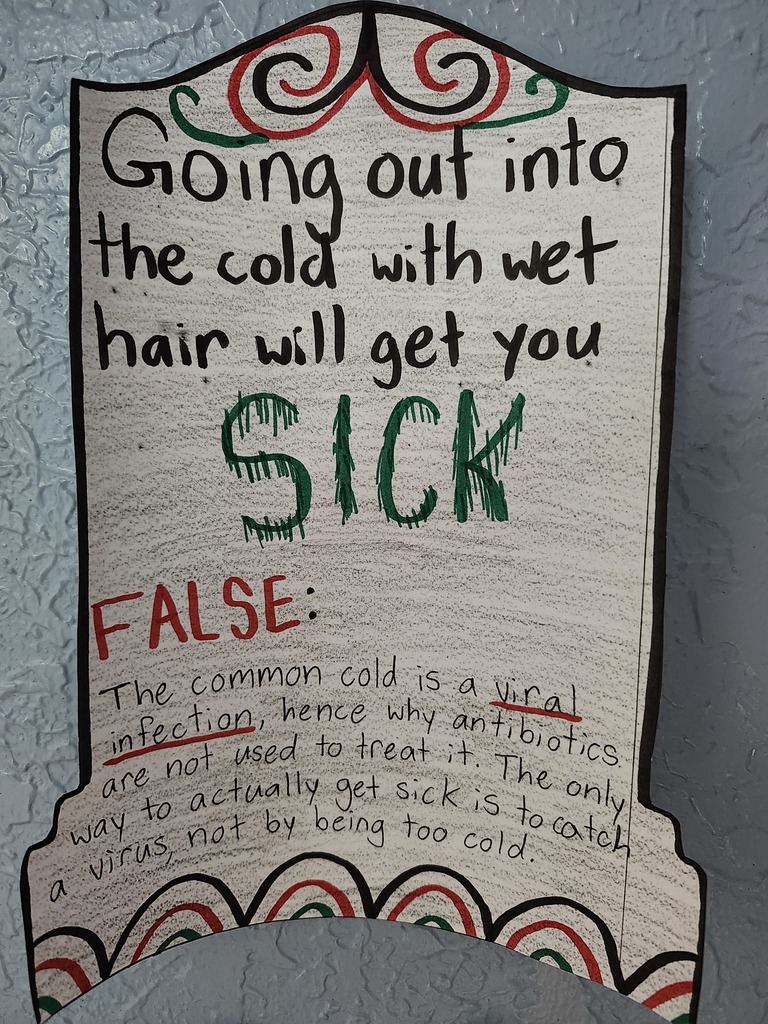 Going out into
the cold with wet
hair will get you
SICK
FALSE:
The common cold is a viral
infection, hence why antibiotics
are not used to treat it. The only
way to actually get sick is to catch
a virus, not by being too cold.